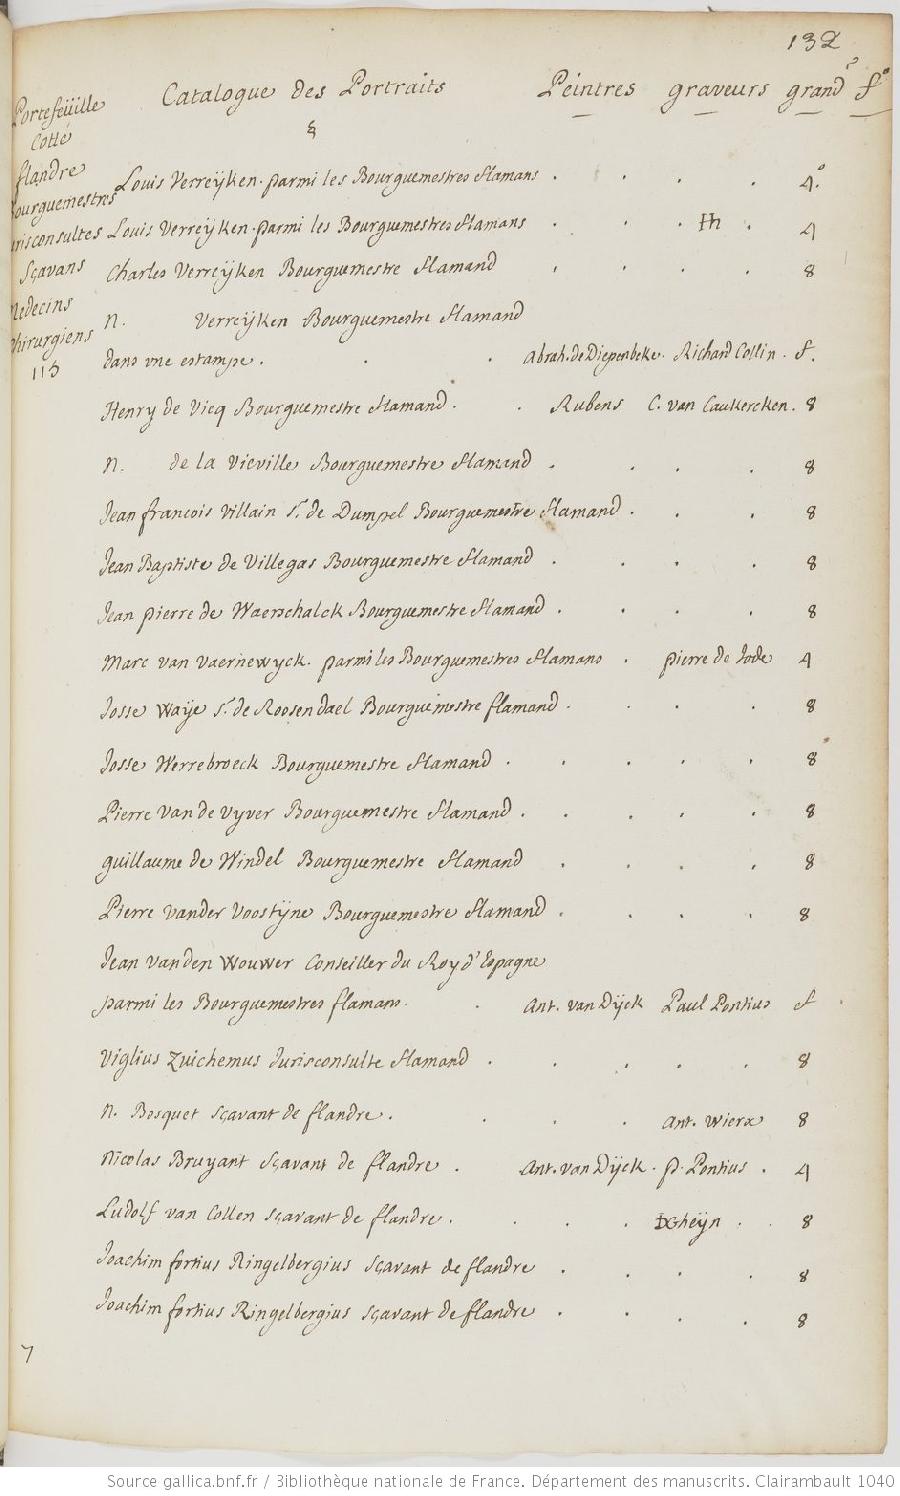 132
Portefeüille
Cotté
flandre
Bourguemestres
Jurisconsultes
Sçavans
Medecins
Chirurgiens
113
Catalogue des Portraits Peintres graveurs grandr fo
Louis Verreÿken. parmi les Bourguemestres flamans . . . . 4o
Louis Verreÿken. parmi les Bourguemestres flamans . . . . 4
Charles Verreÿken Bourguemestre flamand . . . . 8
n. Verreÿken Bourguemestre flamand
dans une estampe . . . Abrah. de Diepenbeke. Richard Collin . f.
Henry de Vicq Bourguemestre flamand . . Rubens C. van Caukercken. 8
n. de la Vieville Bourguemestre flamand . . . . 8
Jean francois Villain Sr. de Dumpel Bourguemestre flamand . . . 8
Jean Baptiste de Villegas Bourguemestre flamand . . . . 8
Jean pierre de Waerschalck Bourguemestre flamand . . . . 8
Marc van vaernewyck. parmi les Bourguemestres flamans . pierre de Jode 4
Josse waÿe Sr. de Roosendael Bourguemestre flamand . . . . 8
Josse Werrebroeck Bourguemestre flamand . . . . . 8
Pierre van de vyver Bourguemestre flamand . . . . . 8
guillaume de Windel Bourguemestre flamand . . . . 8
Pierre vander Voostÿne Bourguemestre flamand . . . . 8
Jean vanden wouwer Conseiller du Roy d'Espagne
parmi les Bourguemestres flamans . . Ant. van Dÿck Paul Pontius f
Viglius Zuichemus Jurisconsulte flamand . . . . . 8
n. Bosquet sçavant de flandre . . . . Ant. wierx 8
Nicolas Bruyant sçavant de flandre . Ant. van Dÿck . p. Pontius . 4
Ludolf van Collen sçavant de flandre . . . . DGheÿn . . 8
Joachim fortius Ringelbergius sçavant de flandre . . . . 8
Joachim fortius Ringelbergius sçavant de flandre . . . . 8
7
Source gallica.bnf.fr / Bibliothèque nationale de France. Département des manuscrits. Clairambault 1040